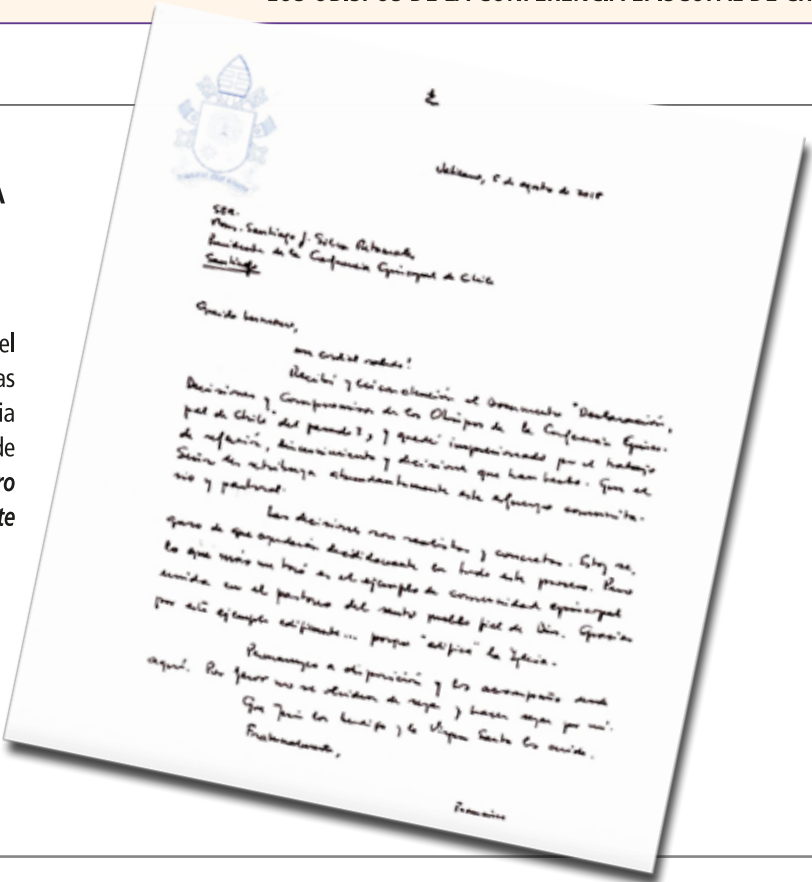 LOS OBISPOS DE LA CONFERENCIA EPISCOPAL DE
A
el
as
ia
de
ro
te
Vaticano, 5 de agosto de 2018
S.E.R.
Mons. Santiago J. Silva Retamales
Presidente de la Conferencia Episcopal de Chile
Santiago
Querido hermano,
un cordial saludo!
Recibí y leí con atención el Documento "Declaración,
Decisiones y Compromisos de los Obispos de la Conferencia Episco-
pal de Chile" del pasado 3, y quedé impresionado por el trabajo
de reflexión, discernimiento y decisiones que han hecho. Que el
Señor les retribuya abundantemente este esfuerzo comunita-
rio y pastoral.
Las decisiones son realistas y concretas. Estoy se-
guro de que ayudarán decididamente en todo este proceso. Pero
lo que más me tocó es el ejemplo de comunidad episcopal
unida en el pastoreo del santo pueblo fiel de Dios. Gracias
por este ejemplo edificante... porque "edifica" la Iglesia.
Permanezco a disposición y los acompaño desde
aquí. Por favor no se olviden de rezar y hacer rezar por mí.
Que Jesús los bendiga y la Virgen Santa los cuide.
Fraternalmente,
Francisco